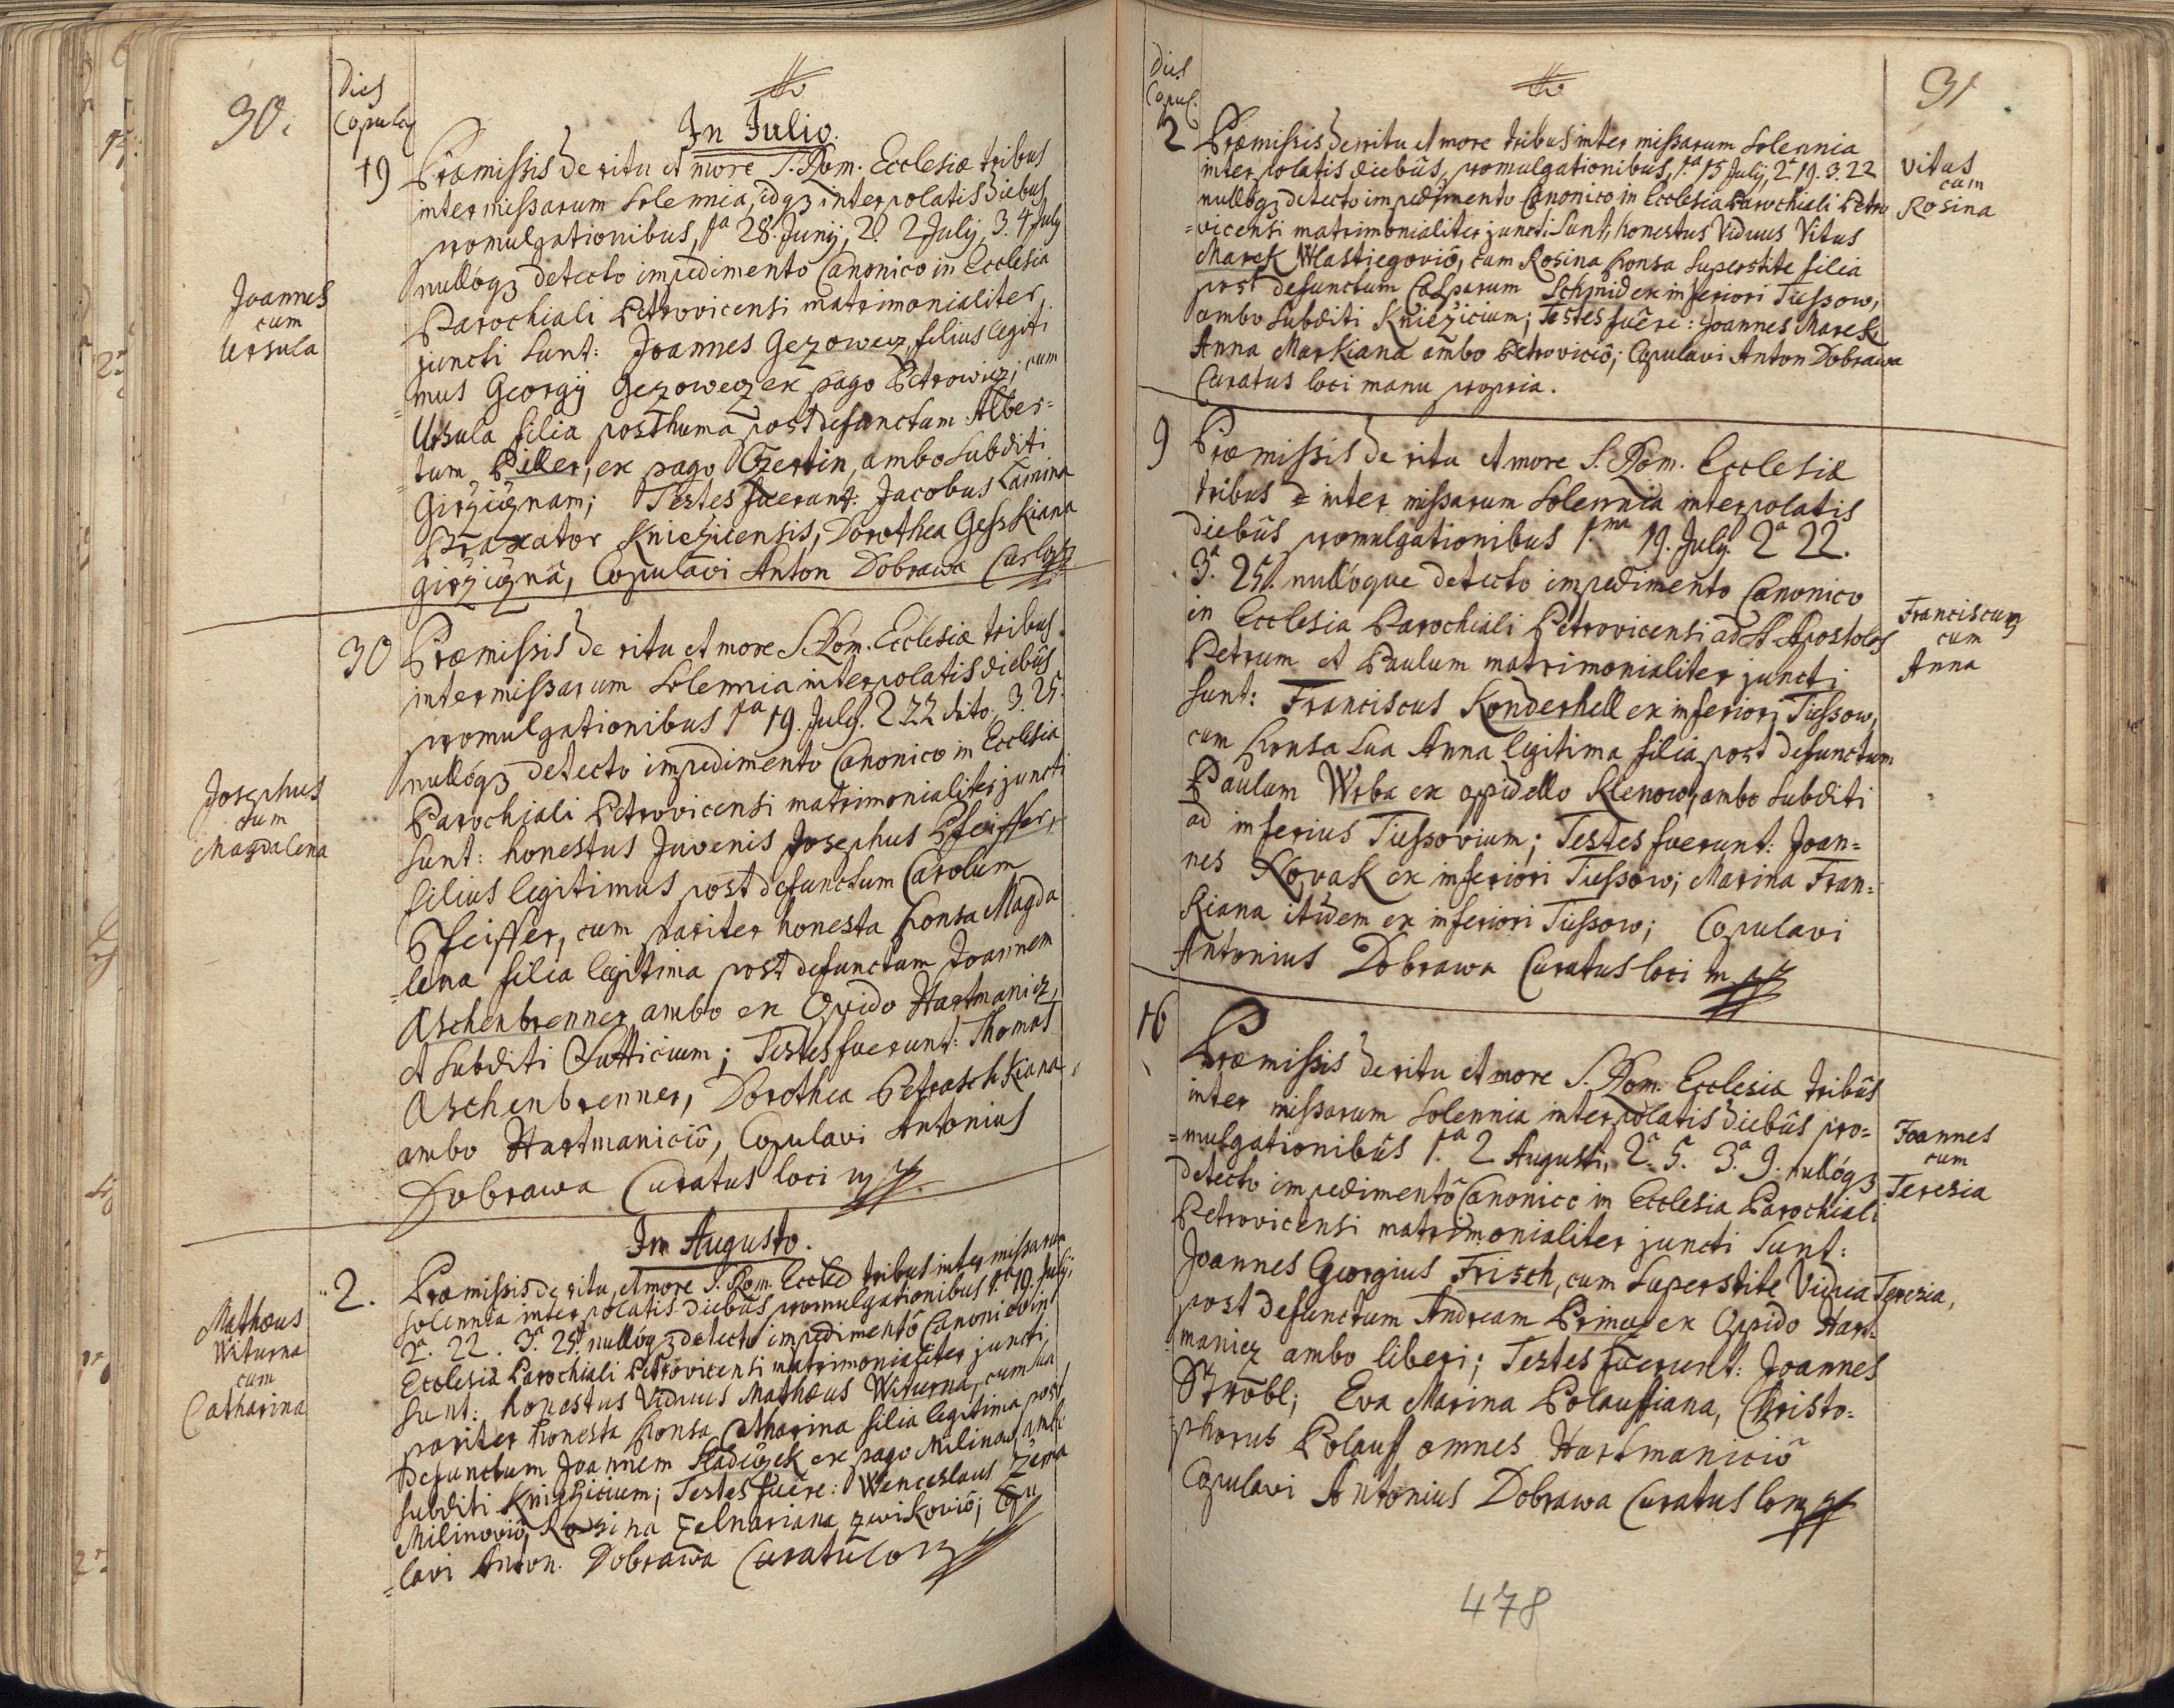 30.
Dies
Copulaõ
In Julio.
19 Præmissis de ritu et more S. Rom. Ecclesiæ tribus
inter missarum Solennia, idq3 interpolatis diebus
promulgationibus, 1a 28. Junij, 2. 2 July, 3. 4 July
nullóq3 detecto impedimento Canonico in Ecclesia
Parochiali Petrovicensi matrimonialiter
juncti Sunt: Joannes Gezowecz, filius legiti
=mus Georgÿ Gezowecz ex pago Petrowicz; cum
Ursula filia posthuma post defunctum Alber=
tum Piller, ex pago Ozertin, ambo Subditi
Girzicznam; Testes fuerunt: Jacobus Lamina
Braxator Kniezicensis, Dorothea Gesskiana
girziczna, Copulavi Anton Dobrawa
Joannes
cum
Ursula
30 Præmissis de ritu et more S. Rom. Ecclesiæ tribus
inter missarum Solennia interpolatis diebus
promulgationibus 1a 19. July. 2 22 dito. 3. 25.
nullóq3 detecto impedimento Canonico in Ecclesia
Parochiali Petrovicensi matrimonialiter juncti
Sunt: honestus Juvenis Josephus Pfeiffer,
filius legitimus post defunctum Carolum
Pfeiffer, cum pariter honesta sponsa Magda
=lena filia legitima post defunctum Joannem
Aschenbrenner ambo ex Opido Hartmanicz,
et Subditi Sutticium; Testes fuerunt: Thomas
Aschenbrenner, Dorothea Petraschkiana
ambo Hartmaniciô, Copulavi Antonius
Dobrawa Curatus loci
Josephus
cum
Magdalena
In Augusto.
2. Præmissis de ritu et more S. Rom. tribus inter missarum
Solennia interpolatis diebus promulgationibus 1.ma 19. July,
2a. 22. 3a. 25. nullóq3 detecto impedimentô Canonico in
Ecclesia Parochiali Petrovicensi matrimonialiter juncti
Sunt: honestus Viduus Mathæus Witurna, cum sua
pariter honesta sponsa Catharina filia legitima post
defunctum Joannem Sladeczek ex pago Milinow, ambo
Subditi Kniezicium; Testes fuêre: Wenceslaus Zema
Milinoviô, Rosina Zelnariana zwikoviô; Copu
=lavi Anton. Dobrawa
Mathæus
Witurna
cum
Catharina
31
Dies
Copul.
2 Præmissis de ritu et more tribus inter missarum Solennia
interpolatis diebus, promulgationibus, 1.a 15 July, 2a 19. 3. 22
nullóq3 detecto impedimento Canonico in Ecclesia Parochiali Petro
=vicensi matrimonialiter juncti Sunt, honestus Viduus Vitus
Marek Wlastiegoviô, cum Rosina sponsa Superstite filia
post defunctum Casparum Schmid ex inferiori Tiessow,
ambo Subditi Kniezicium; Testes fuêre: Joannes Marek
Anna Markiana ambo Petroviciô; Copulavi Anton Dobrawa
Curatus loci manu propria.
Vitus
cum
Rosina
9 Præmissis de ritu et more S. Rom. Ecclesiæ
tribus inter missarum Solennia interpolatis
diebus promulgationibus 1.ma 19. July. 2a 22.
3a. 25. nullóque detecto impedimento Canonico
in Ecclesia Parochiali Petrovicensi ad S Apostolos
Petrum et Paulum matrimonialiter juncti
Sunt: Franciscus Konderhell ex inferiori Tiessow,
cum sponsa Sua Anna legitima filia post defunctum
Paulum Wrba ex oppidello Klenow, ambo Subditi
ad inferius Tiessovium; Testes fuerunt: Joan=
nes Novak ex inferiori Tiessow; Marina Fran=
kiana itidem ex inferiori Tiessow; Copulavi
Antonius Dobrawa Curatus loci
Franciscus
cum
Anna
16 Præmissis de ritu et more S. Rom. Ecclesia tribus
inter missarum Solennia interpolatis diebus pro=
=mulgationibus 1.a 2 Augusti, 2a. 5. 3a. 9. nullóq3
detecto impedimentô Canonico in Ecclesia Parochiali
Petrovicensi matrimonialiter juncti Sunt:
Joannes Georgius Frisch, cum Superstite Vidua Teresia,
post defunctum Andream ex Oppido Hart=
manicz ambo liberi; Testes fuerunt: Joannes
Ströbl; Eva Marina Polaussiana, Christo=
=phorus Polauss omnes Hartmaniciô
Copulavi Antonius Dobrawa Curatus
Joannes
cum
Teresia
478